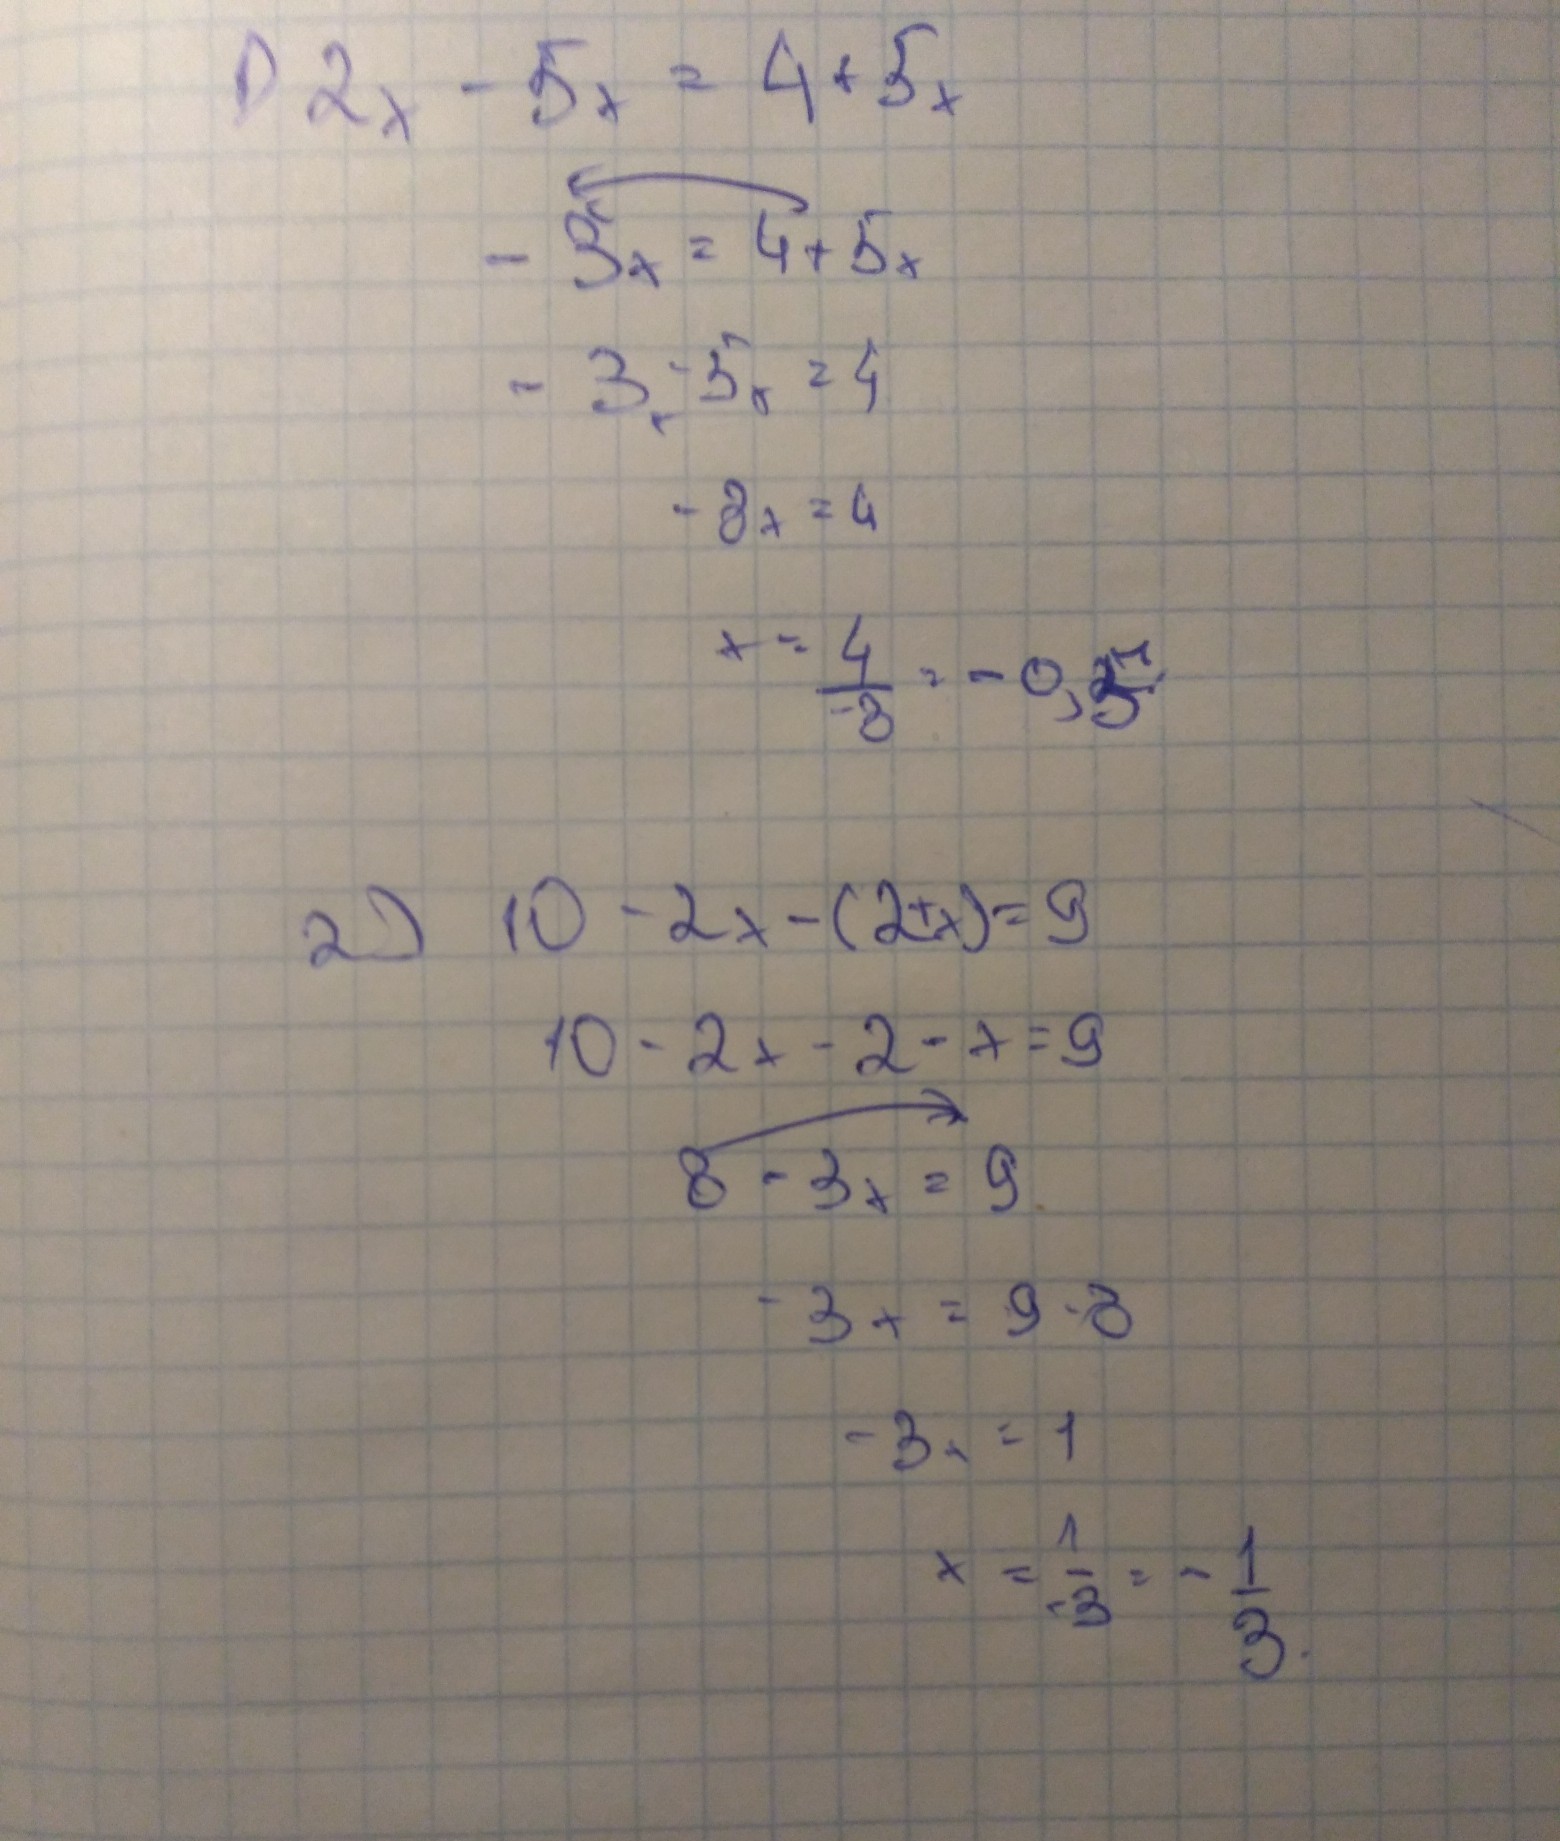 1) 2x - 5x = 4 + 5x
- 3x = 4 + 5x
- 3x - 5x = 4
- 8x = 4
x = 4/-8 = - 0,5
2) 10 - 2x - (2+x) = 9
10 - 2x - 2 - x = 9
8 - 3x = 9
- 3x = 9 - 8
- 3x = 1
x = 1/-3 = - 1/3.